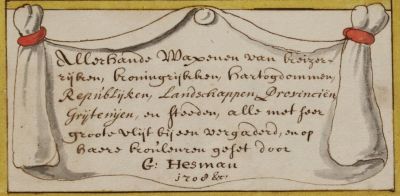 Allerhande Wapenen van Keizer-
rijken, Koningrijkken, Hartogdommen,
Republijken, Landschappen, Provinciën,
Grijtenijen, en steeden, alle met seer
groote vlijt bij een vergaderd, en op
haere Kouleuren geset door
G: Hesman
1708 &c: